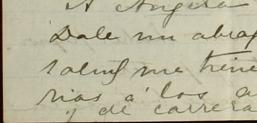 A Angela
Dale un abra
salud me tiene
rias a los a
y de carrera